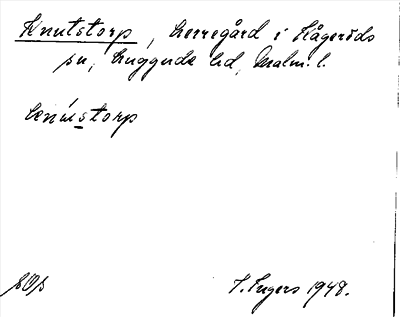 Knutstorp, herregård i Kågeröds
sn, Luggude hd, Malm. l.
knústorp
I. Ingers 1948.